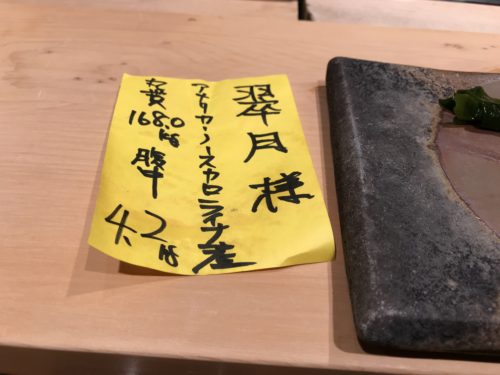 翠月様
アメリカ・ノースカロライナ産
168.0kg 腹中
4.2kg